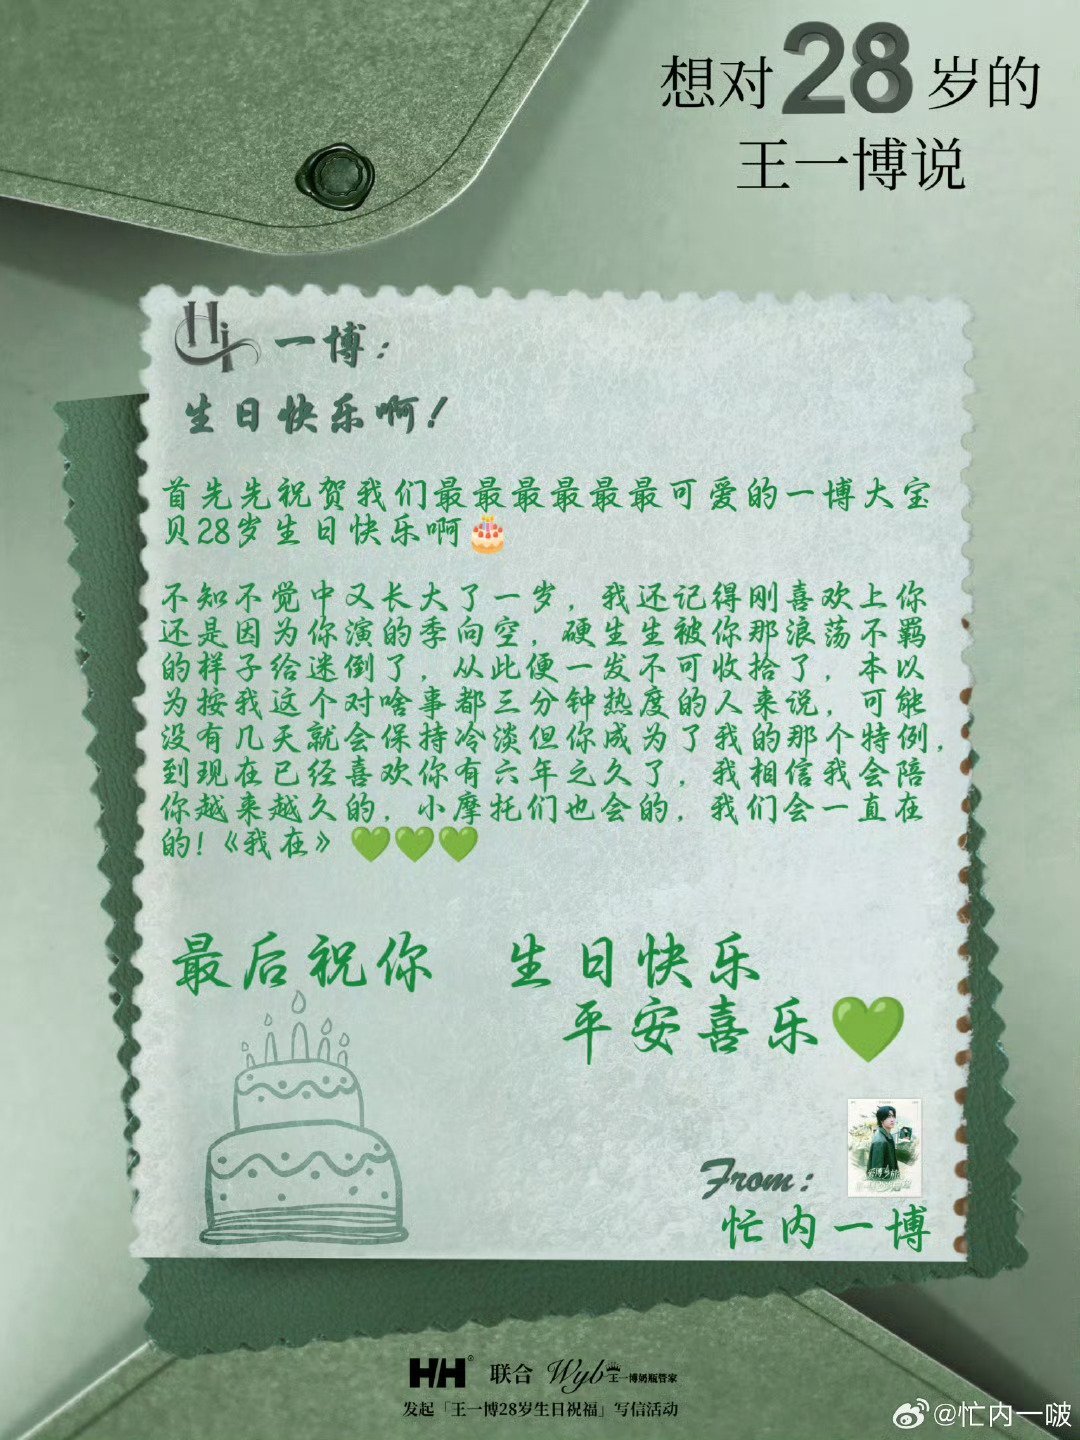 想对28岁的
王一博说
Hi 一博：
生日快乐啊！
首先先祝贺我们最最最最最最可爱的一博大宝
贝28岁生日快乐啊🎂
不知不觉中又长大了一岁，我还记得刚喜欢上你
还是因为你演的季向空，硬生生被你那浪荡不羁
的样子给迷倒了，从此便一发不可收拾了，本以
为按我这个对啥事都三分钟热度的人来说，可能
没有几天就会保持冷淡但你成为了我的那个特例，
到现在已经喜欢你有六年之久了，我相信我会陪
你越来越久的，小摩托们也会的，我们会一直在
的!《我在》💚💚💚
最后祝你 生日快乐
平安喜乐💚
From:
忙内一博
HH® 联合 Wyb王一博奶瓶管家
发起「王一博28岁生日祝福」写信活动
@忙内一啵